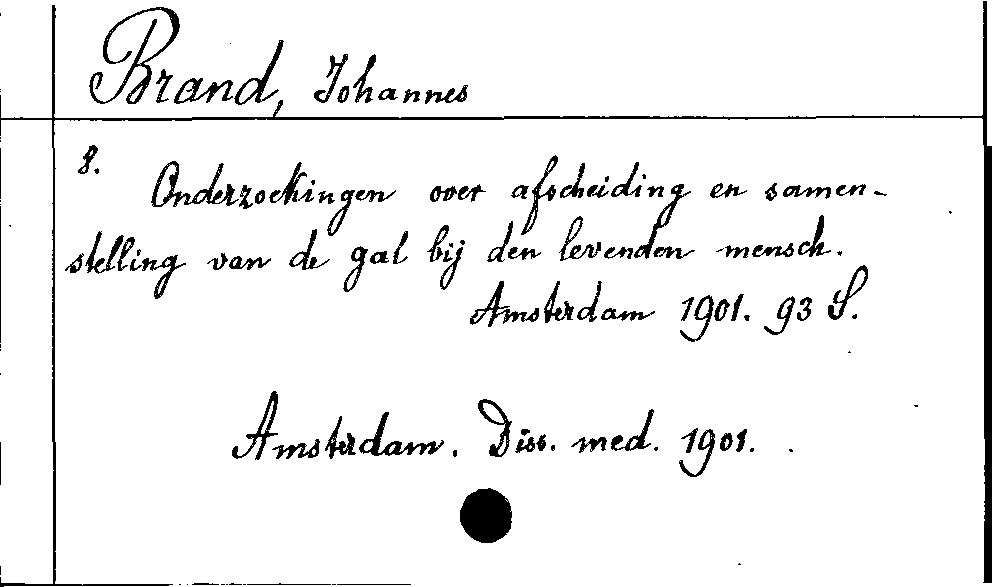 Brand, Johannes
8.
Onderzoekingen over afscheiding en samen-
stelling van de gal bij den levenden mensch.
Amsterdam 1901. 93 S.
Amsterdam. Diss. med. 1901.